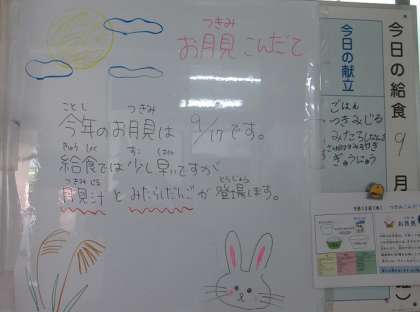 お月見こんだて
つきみ
今年のお月見は 9/17です。
ことし
つきみ
給食では少し早いですが
きゅうしょく
すこ
はや
月見汁とみたらしだんごが登場します。
つきみじる
とうじょう
今日の給食
9月
今日の献立
ごはん
つきみじる
みたらしだんご
ぎゅうにゅう
お月見